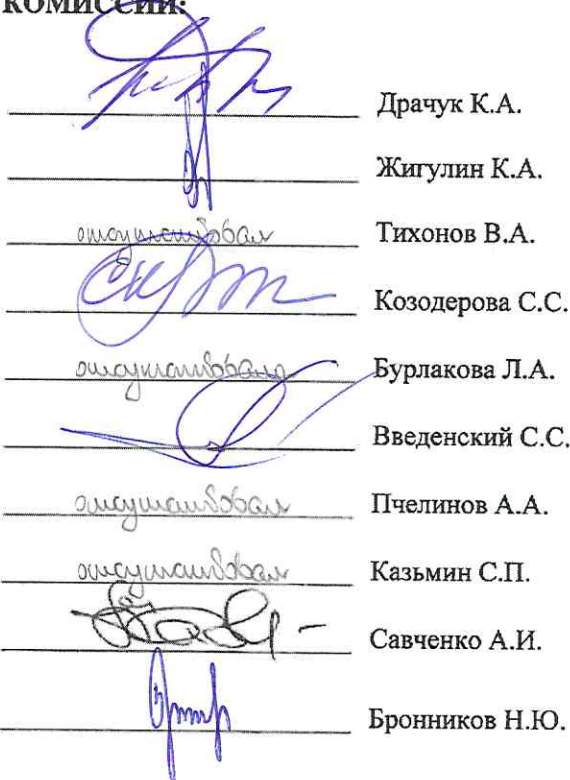 КОМИССИИ:
Драчук К.А.
Жигулин К.А.
отсутствовал Тихонов В.А.
Козодерова С.С.
отсутствовала Бурлакова Л.А.
Введенский С.С.
отсутствовал Пчелинов А.А.
отсутствовал Казьмин С.П.
Савченко А.И.
Бронников Н.Ю.